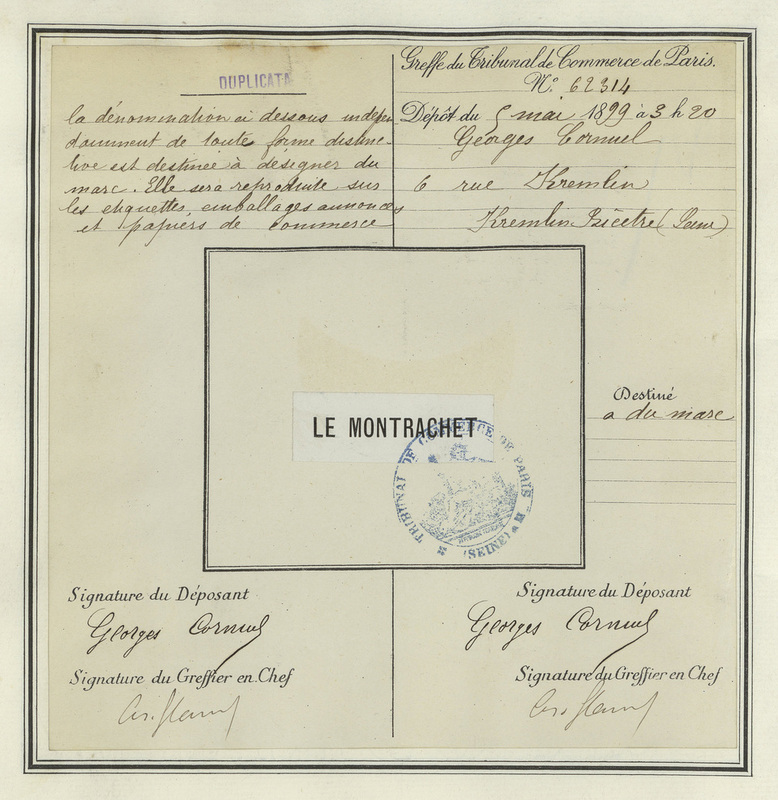 DUPLICATA
la dénomination ci dessous indépen
damment de toute forme distinc-
tive est destinée à désigner du
marc. Elle sera reproduite sur
les etiquettes, emballages annonces
et papiers de commerce
Greffe du Tribunal de Commerce de Paris.
N.º 62314
Dépôt du 5 mai 1899 à 3 h 20
Georges Cornuel
6 rue Kremlin
Kremlin Bicetre (Seine)
LE MONTRACHET
TRIBUNAL DE COMMERCE DE PARIS
(SEINE)
Destiné
a du marc
Signature du Déposant
Georges Cornuel
Signature du Greffier en Chef
Signature du Déposant
Georges Cornuel
Signature du Greffier en Chef